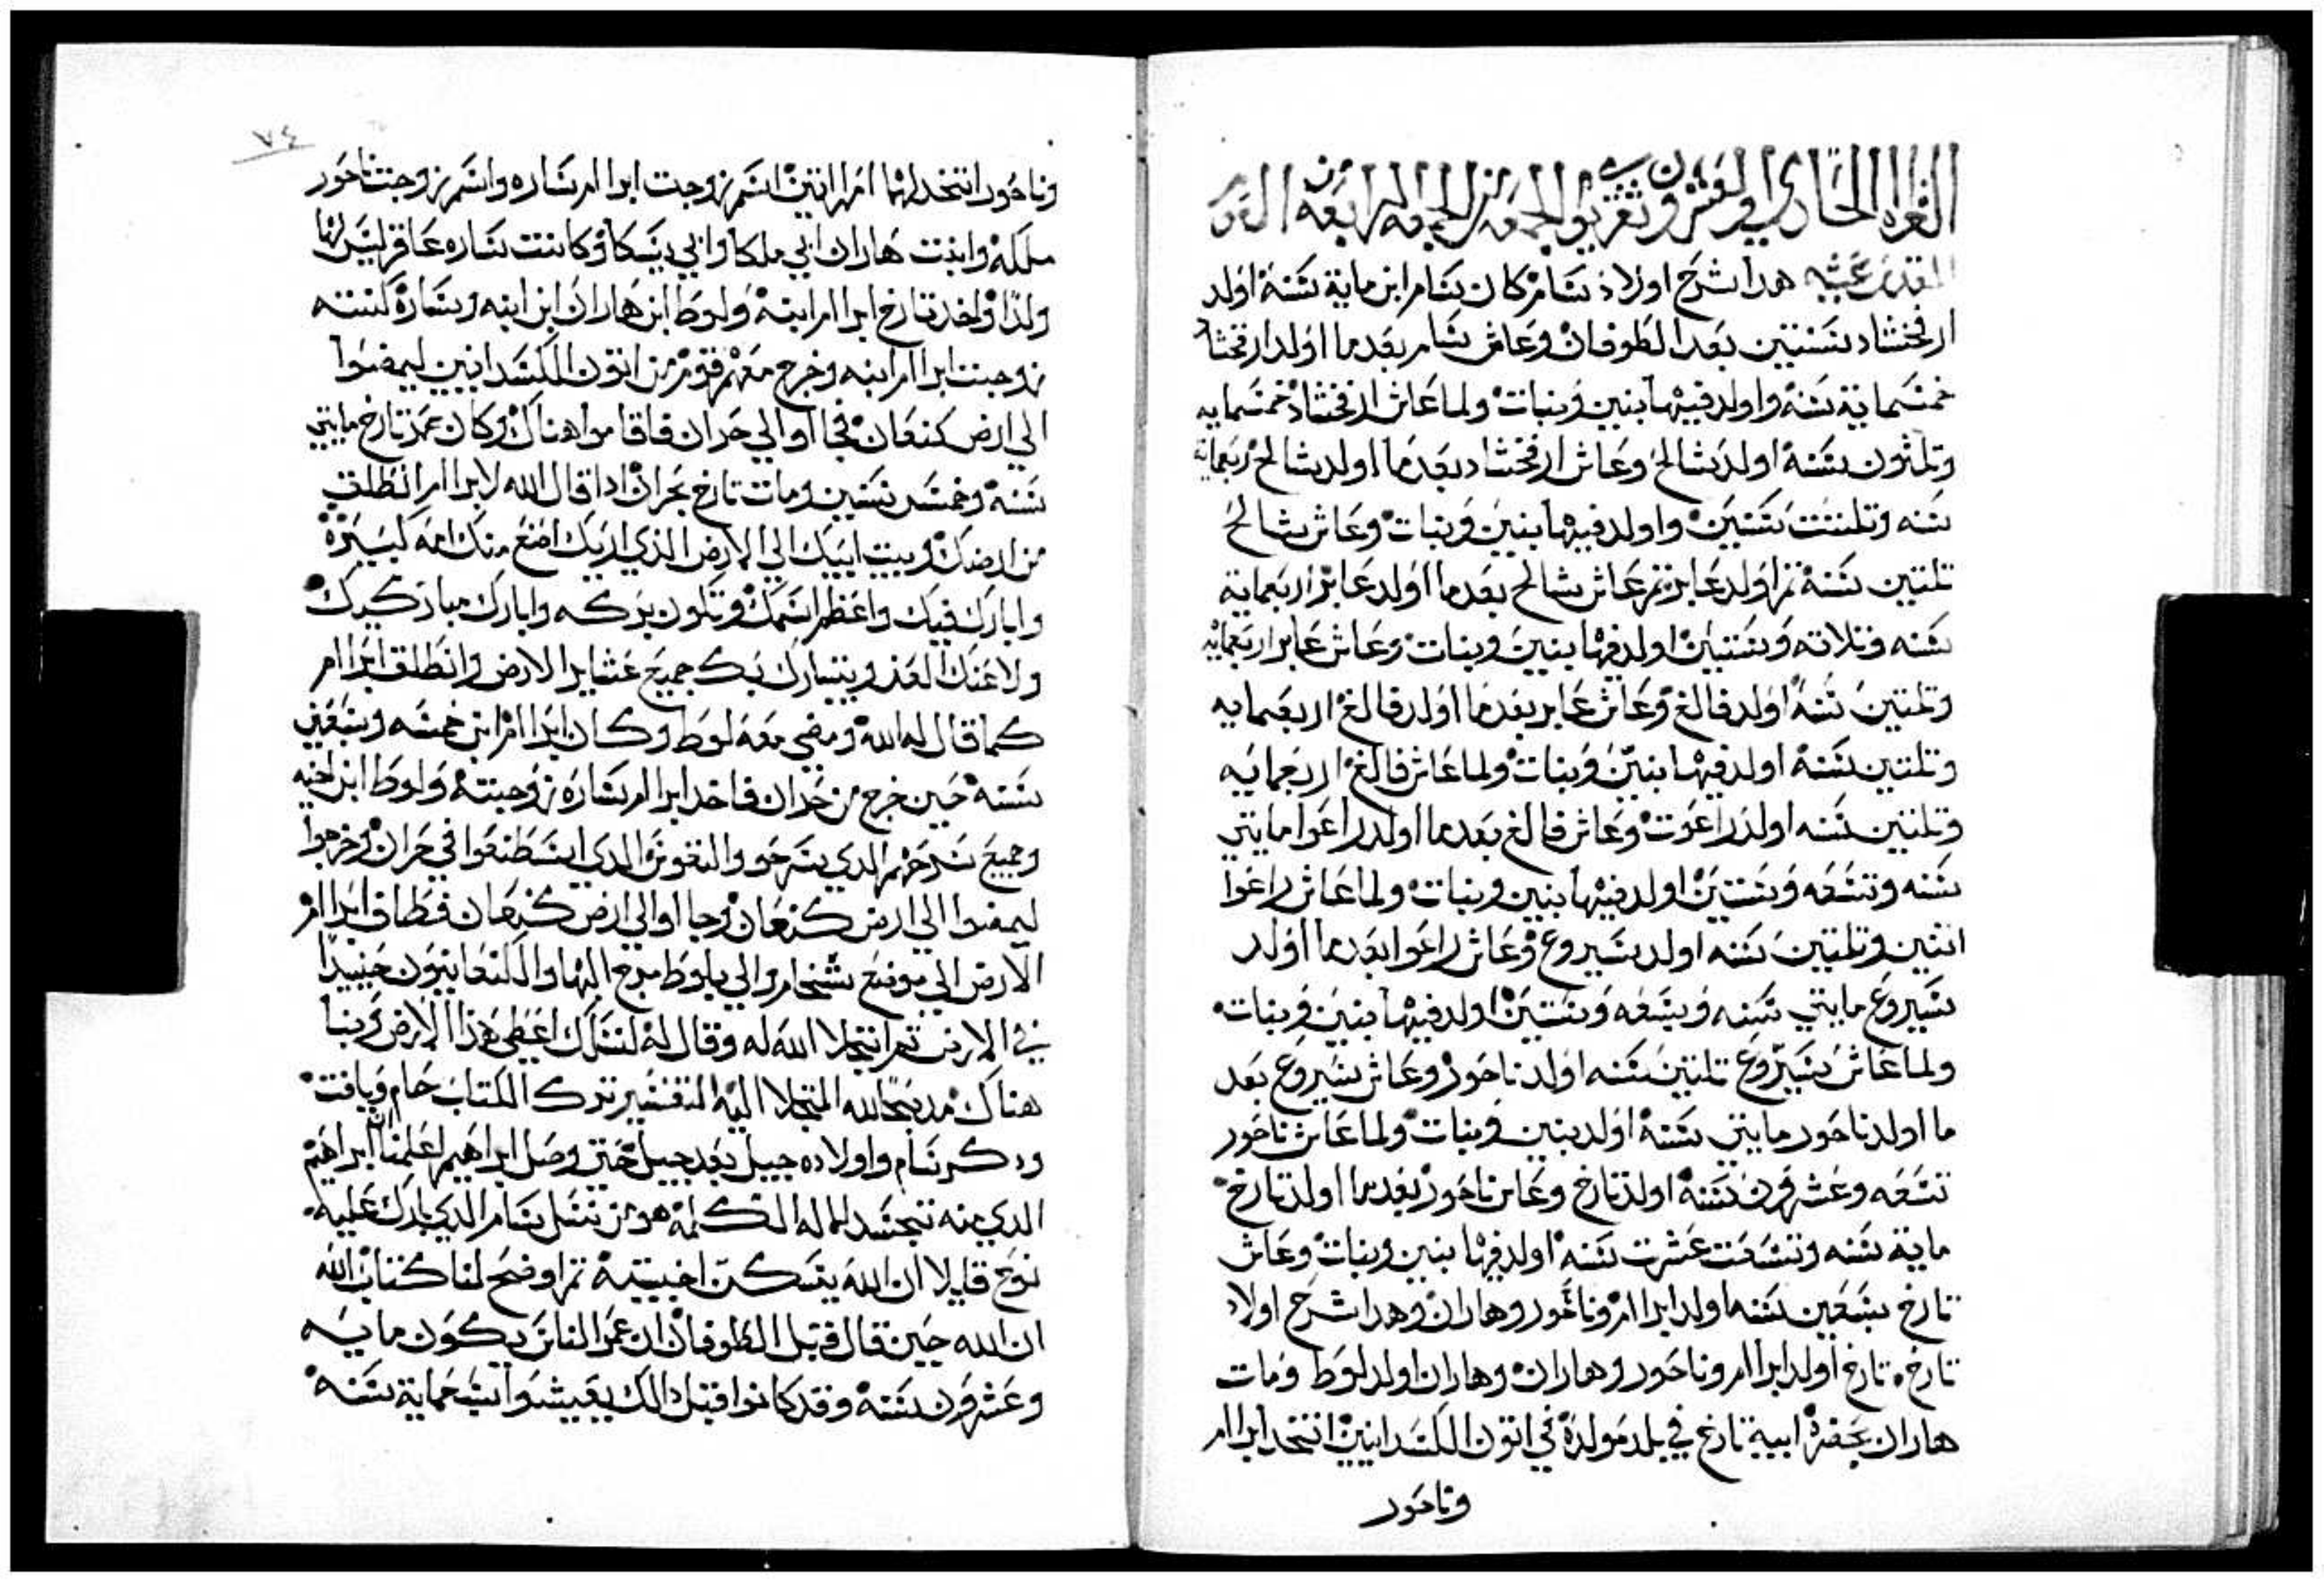 القراه الحادي والعشرون تقري يوم الجمعه من الجمعه الرابعه من الصوم
المقدس عشيه هدا شرح اولاد سام كان سام ابن ماية سنة اولد
ارفخشاد بسنتين بعد الطوفان وعاش سام بعدما اولد ارفخشاد
خمسماية سنة واولد فيها بنين وبنات ولما عاش ارفخشاد خمسمايه
وتلتون سنة اولد شالح وعاش ارفخشاد بعدما اولد شالح اربعماية
سنه وتلتت سنين واولد فيها بنين وبنات وعاش شالح
تلتين سنة تم اولد عابر تم عاش شالح بعدما اولد عابر اربعماية
سنه وتلاته وستين اولد فيها بنين وبنات وعاش عابر اربعمايه
وتلتين سنة اولد فالغ وعاش عابر بعدما اولد فالغ اربعمايه
وتلتين سنة اولد فيها بنين وبنات ولما عاش فالغ اربعمايه
وتلتين سنه اولد راغوت وعاش فالغ بعدما اولد راغوا مايتي
سنه وتسعه وستين اولد فيها بنين وبنات ولما عاش راغوا
اتنين وتلتين سنه اولد سيروع وعاش راغوا بعدما اولد
سيروع مايتي سنه وسبعه وستين اولد فيها بنين وبنات
ولما عاش سيروع تلتين سنه اولد ناحور وعاش سيروع بعد
ما اولد ناحور مايتي سنة اولد بنين وبنات ولما عاش ناحور
تسعه وعشرون سنة اولد تارخ وعاش ناحور بعدما اولد تارخ
ماية سنه وتسعت عشرت سنة اولد فيها بنين وبنات وعاش
تارخ سبعين سنه اولد ابراام وناحور وهاران وهدا شرح اولاد
تارخ تارخ اولد ابراام وناحور وهاران وهاران اولد لوط ومات
هاران بحضرة ابية تارخ في بلد مولدة في اتون الكسدانيين اتخد ابراام
وناحور
٧٤
وناحور اتخد لهما امراتين اسم زوجت ابراام ساره واسم زوجت ناحور
ملكه وابنت هاران ابي ملكا وابي يسكا وكانت ساره عاقر ليس لها
ولدا واخد تارخ ابراام ابنه ولوط ابن هاران ابن ابنه وسارة كنته
زوجت ابراام ابنه وخرج معهم قوم من اتون الكسدانيين ليمضوا
الي ارض كنعان فجااو الي حران فاقاموا هناك وكان عمر تارخ مايتي
سنة وخمس سنين ومات تارخ بحران ادا قال الله لابراام انطلق
من ارضك وبيت ابيك الي الارض الذي اريك اصنع منك امه كبيرة
وابارك فيك واعظم اسمك وتكون بركه وابارك مباركيك
ولاعنك العن ويتبارك بك جميع عشاير الارض وانطلق ابراام
كما قال له الله ومضي معه لوط وكان ابراام ابن خمسه وسبعين
سنة حين خرج من حران فاخد ابراام ساره زوجته ولوط ابن اخيه
وجميع سرحهم الدي سرحو والنفوس الدي اسطنعوا في حران وخرجوا
ليمضوا الي ارض كنعان وجااو الي ارض كنعان فطاف ابراام
الارض الي موضع شخام والي بلوط مرع البها والكنعانيون حينيدا
في الارض تم اتجلا الله له وقال له لنسلك اعطي هذا الارض وبنا
هناك مدبحا لله المتجلا اليه التفسير ترك الكتاب حام ويافت
ودكر سام واولاده جيل بعد جيل حتي وصل ابراهيم اعلمنا ان ابراهيم
الدي منه تجسد الاله الكلمة هو من نسل سام الدي بارك عليه
نوع قايلا ان الله يسكن اخبيتة تم اوضح لنا كتاب الله
ان الله حين قال قبل الطوفان ان عمر الناس يكون مايه
وعشرون سنة وقد كانوا قبل دالك يعيشوا تسعماية سنة